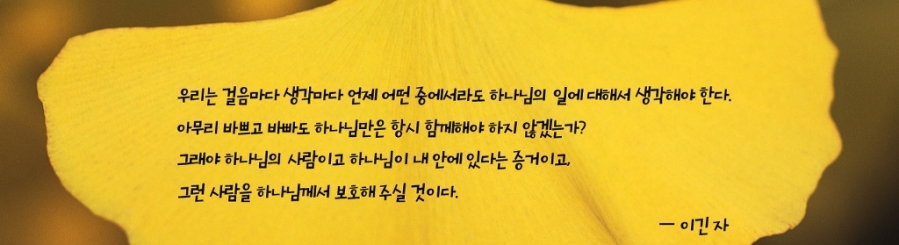 우리는 걸음마다 생각마다 언제 어떤 중에서라도 하나님의 일에 대해서 생각해야 한다.
아무리 바쁘고 바빠도 하나님만은 항시 함께해야 하지 않겠는가?
그래야 하나님의 사람이고 하나님이 내 안에 있다는 증거이고,
그런 사람을 하나님께서 보호해 주실 것이다.
– 이긴자